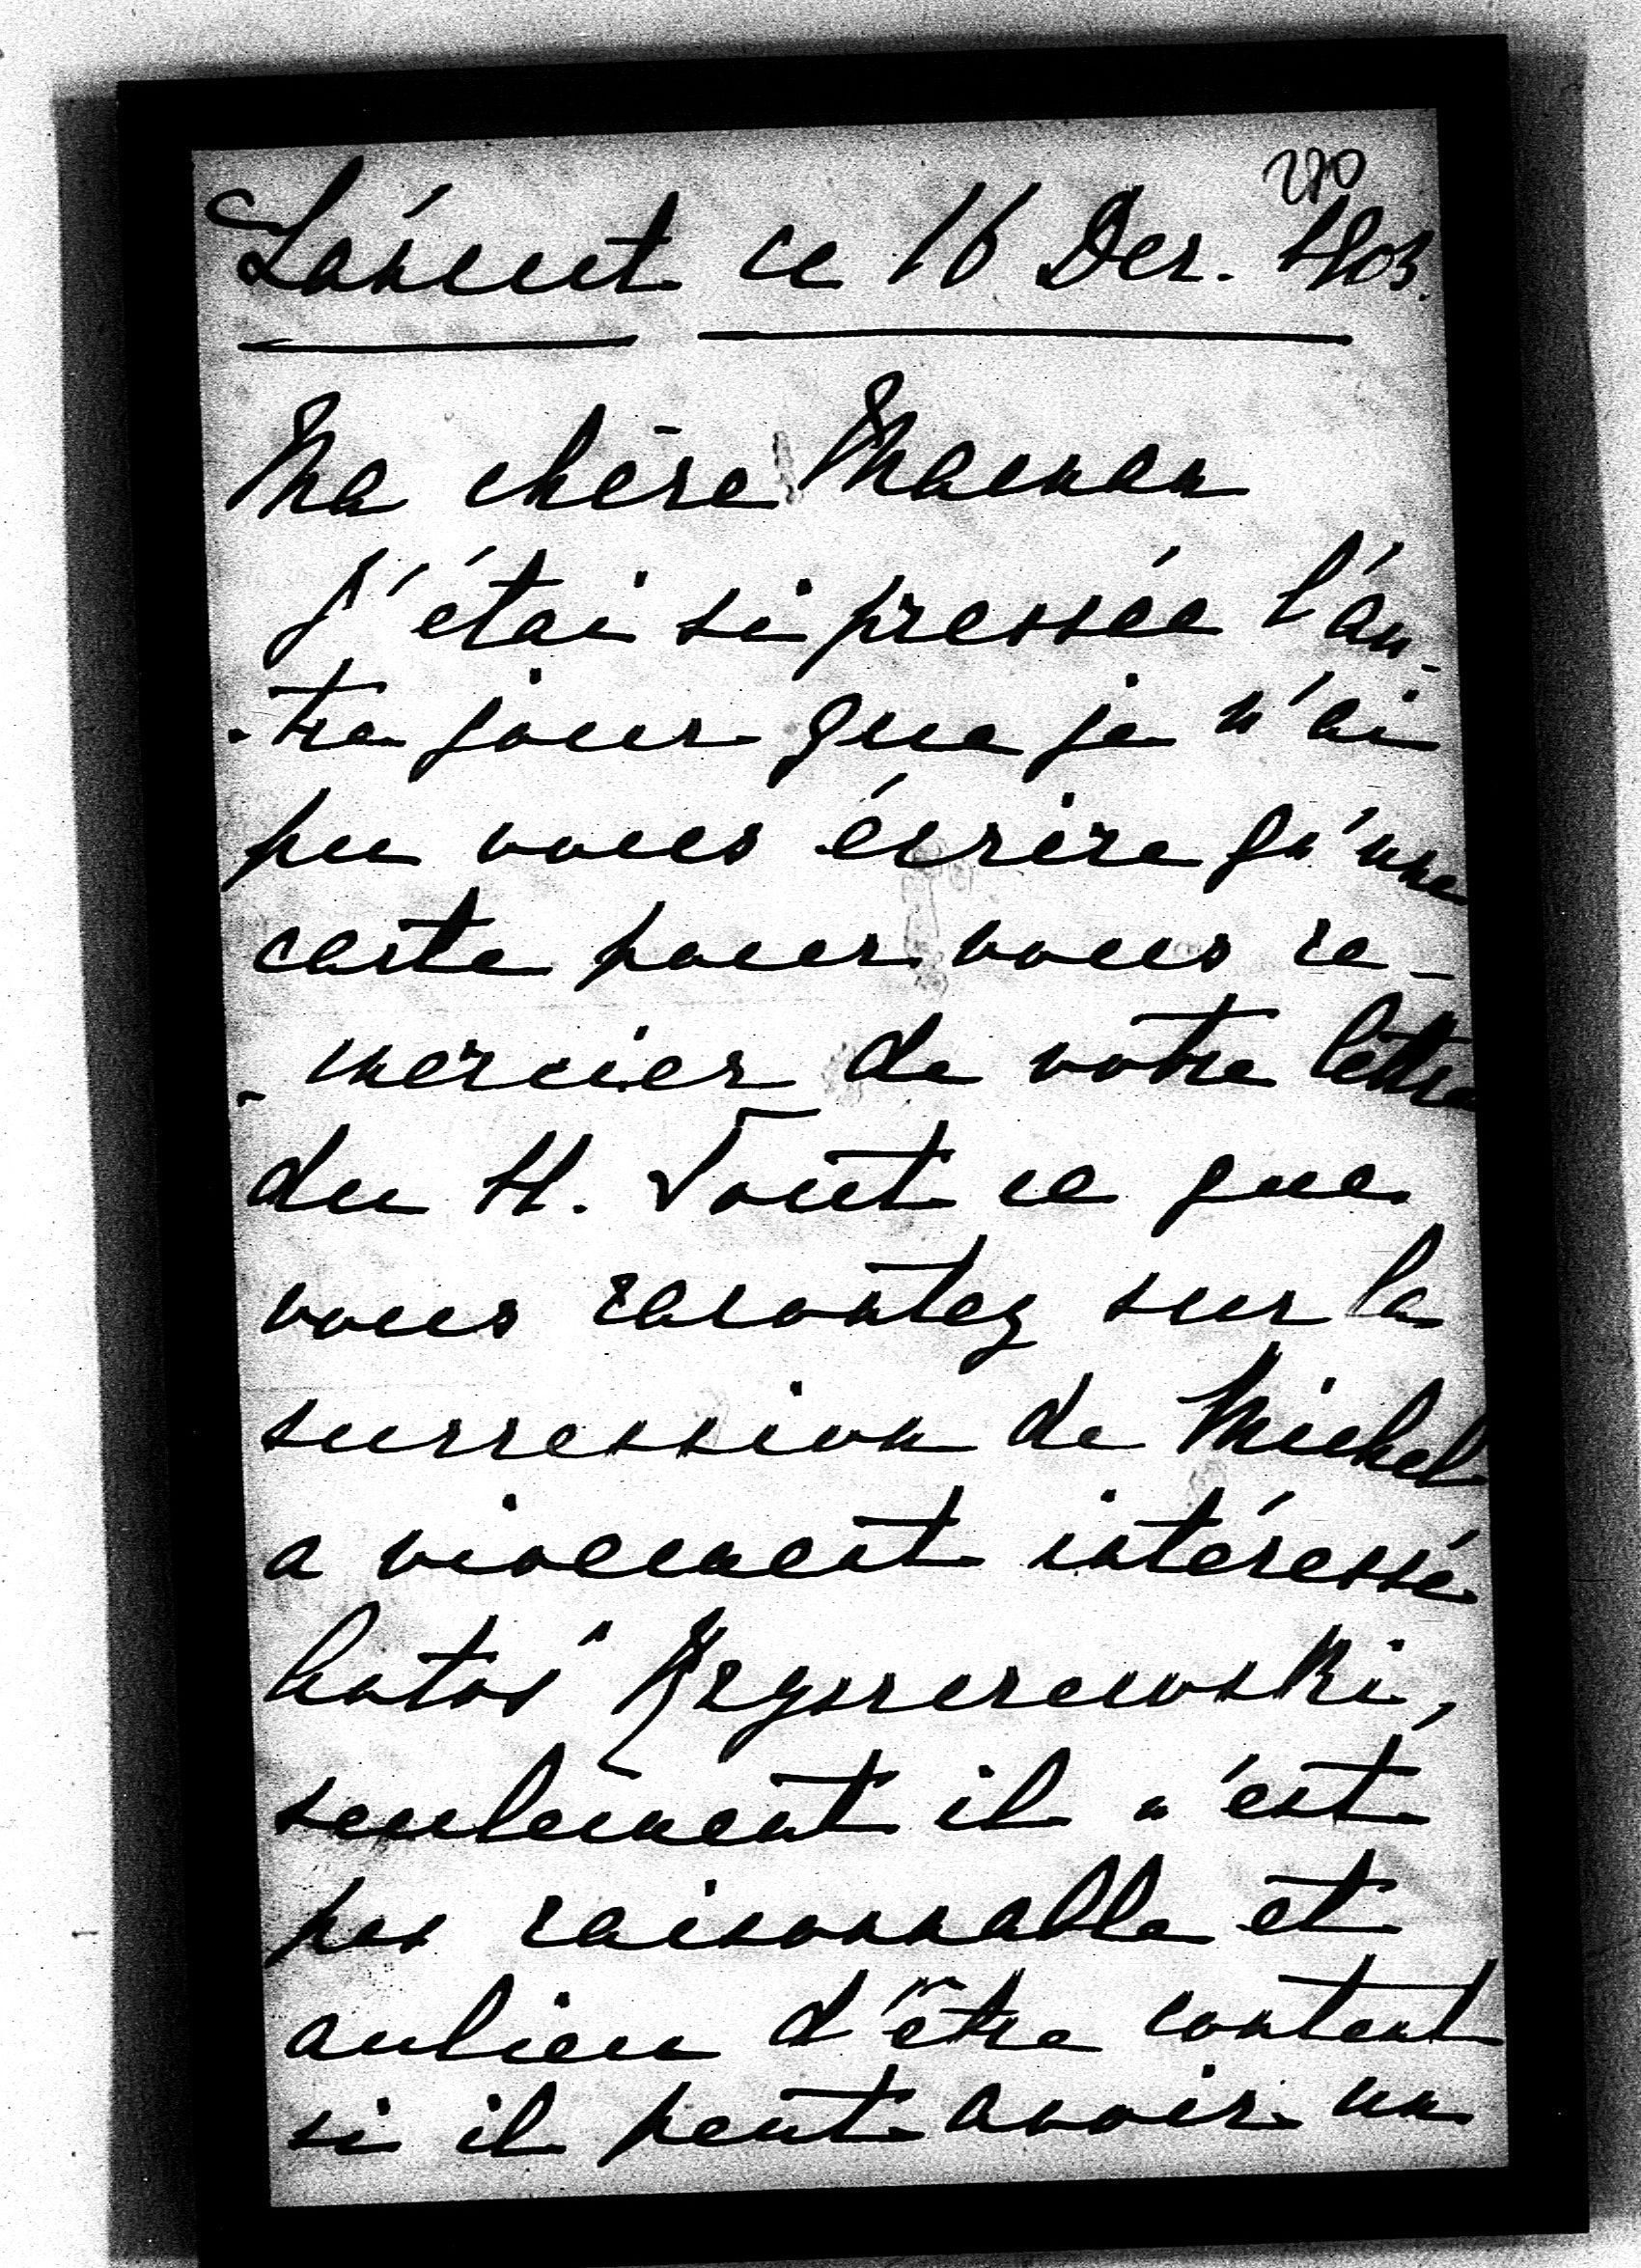 280
Łańcut ce 16 Dec. 1903.
Ma chère Maman
J'étai si pressée l'au-
-tre jour que je n'ai
pu vous écrire qu'une
carte pour vous re-
-mercier de votre lettre
du 11. Tout ce que
vous racontez sur la
succession de Michel
a vivement intéressé
Krzyszczewski,
seulement il n'est
pas raisonnable et
aulieu d'être content
si il peut avoir un